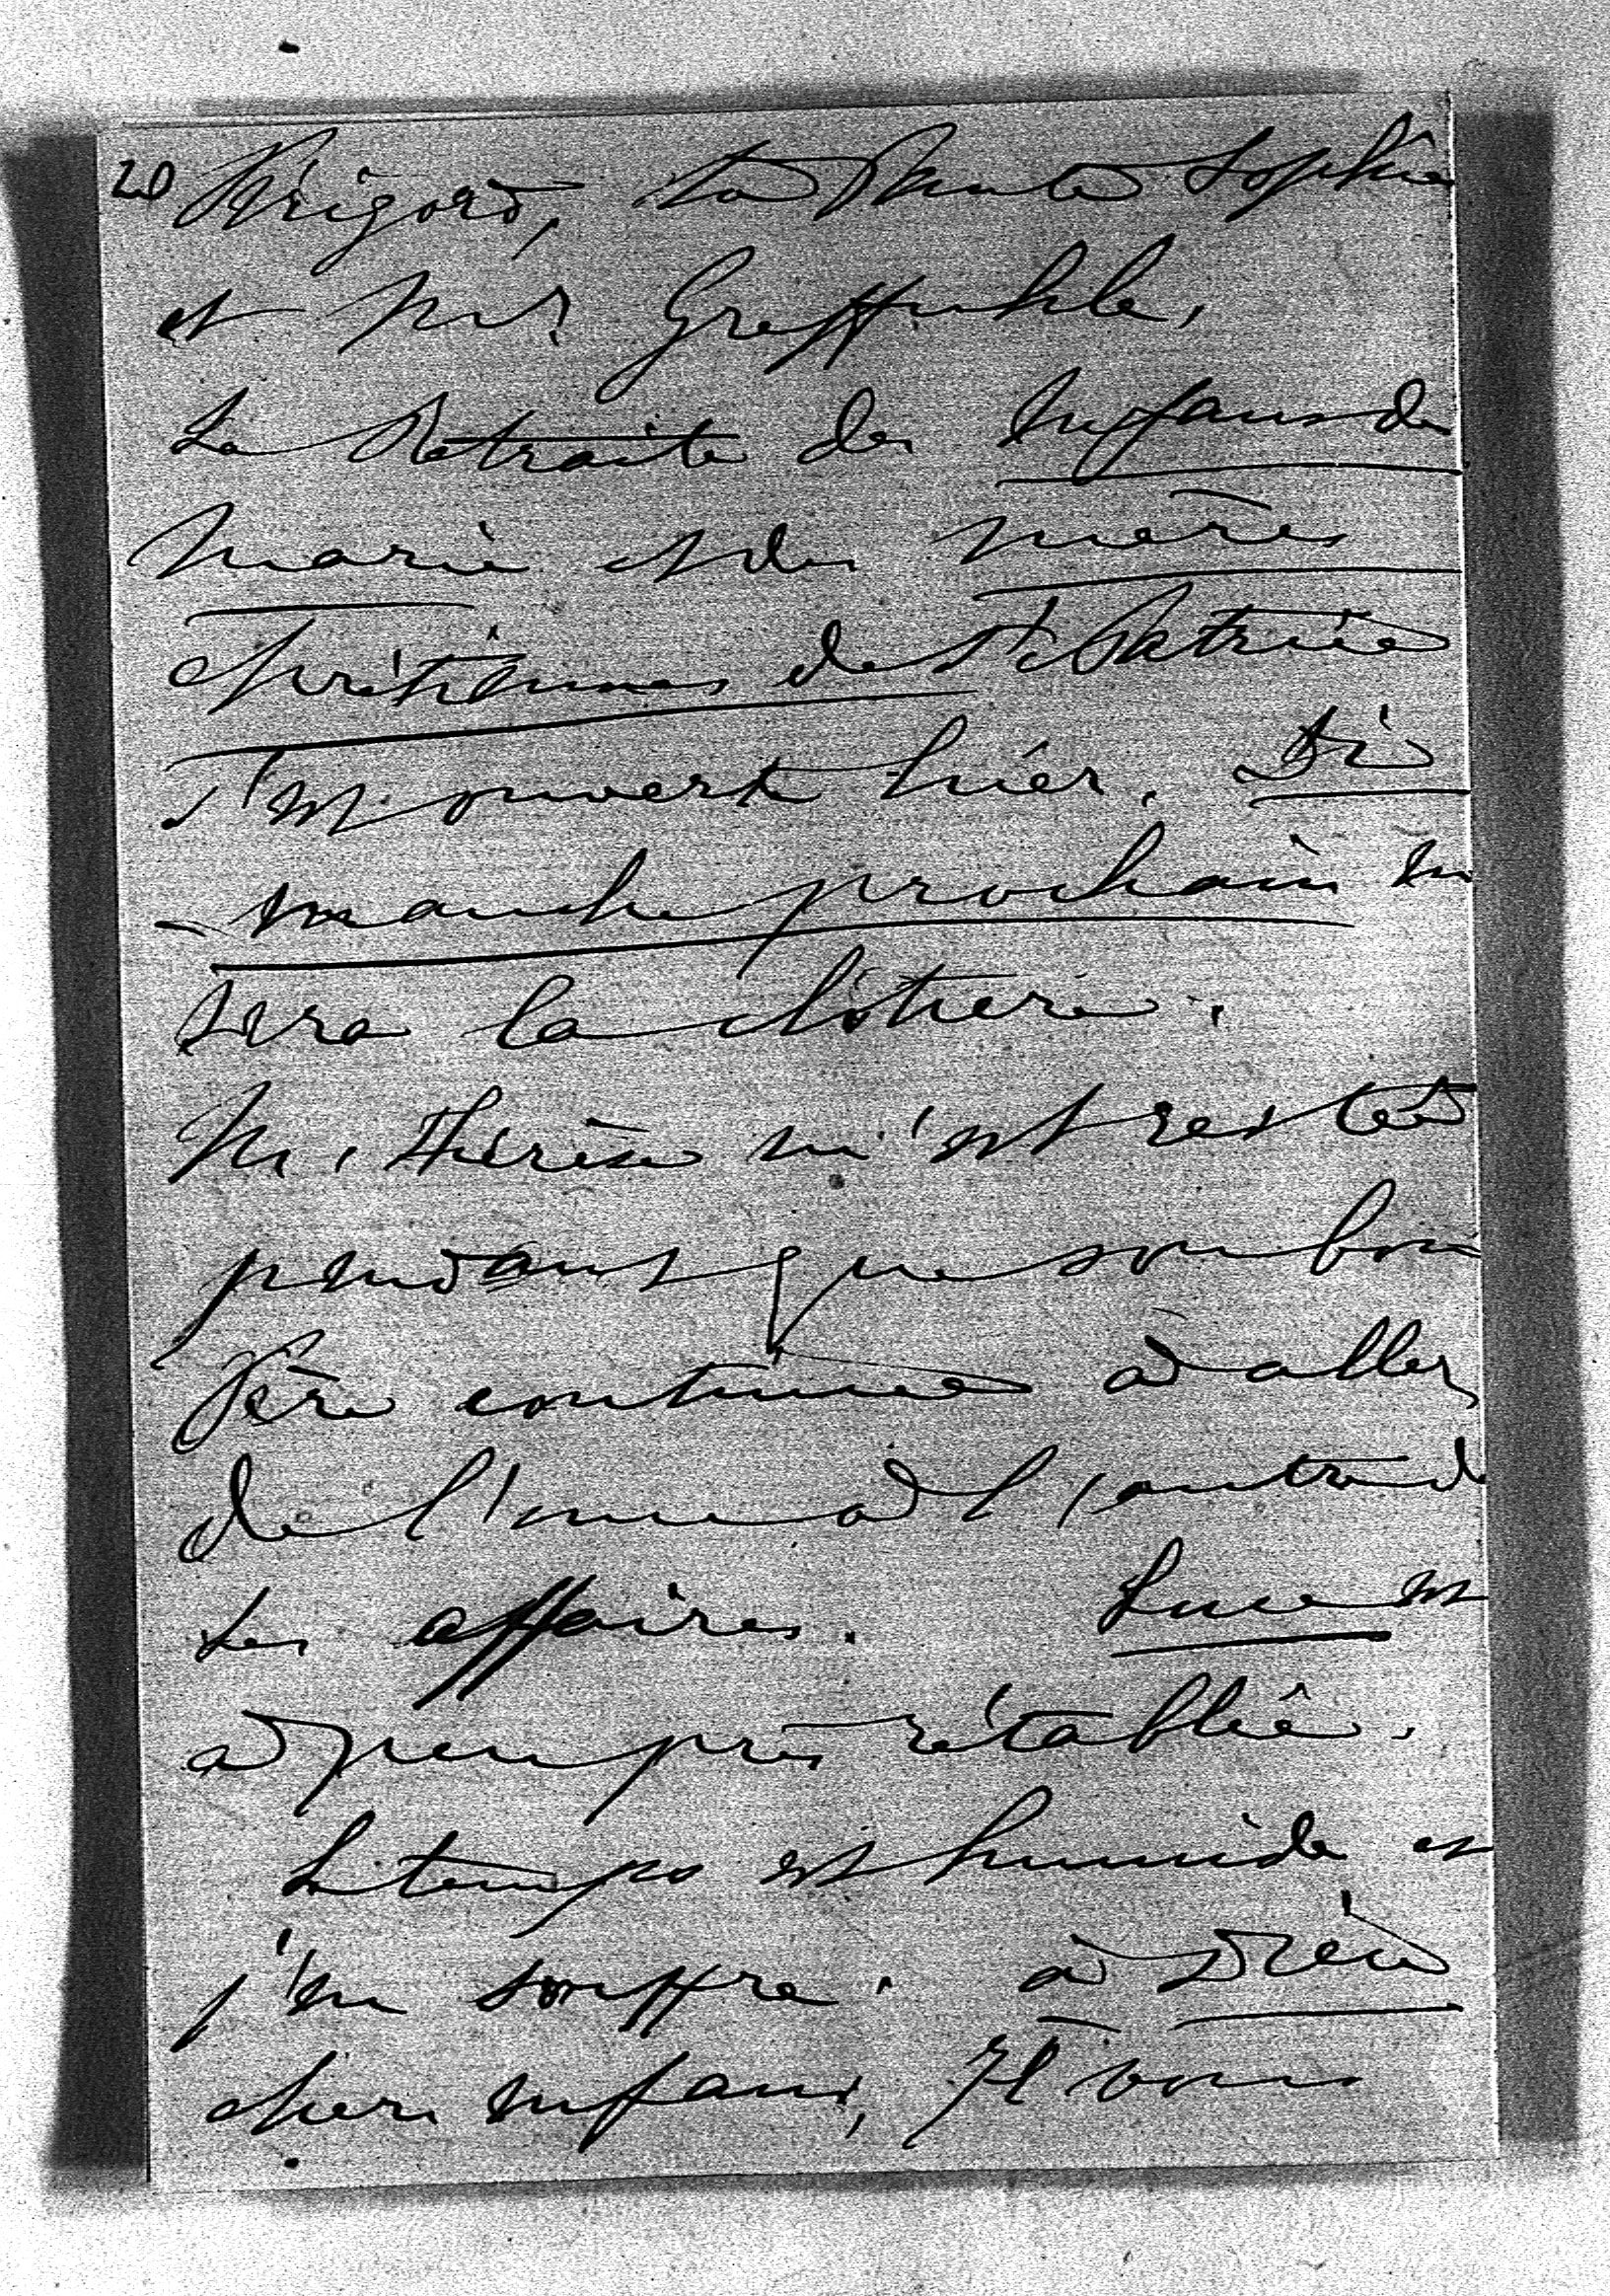 20 Périgord, ta Tante Sophie
et Mr. Greffuhle.
La Retraite des Enfans de
Marie et des mères
chrétiennes de St Patrice
s'est ouverte hier. Di
-manche prochain en
sera la clôture.
M. Thérèse m'est restée
pendant que son bon
Père continue à aller
de l'une à l'autre d
ses affaires. Luce est
à peu près rétablie.
Le temps est humide et
j'en souffre. à Dieu
chers enfans, Je vous